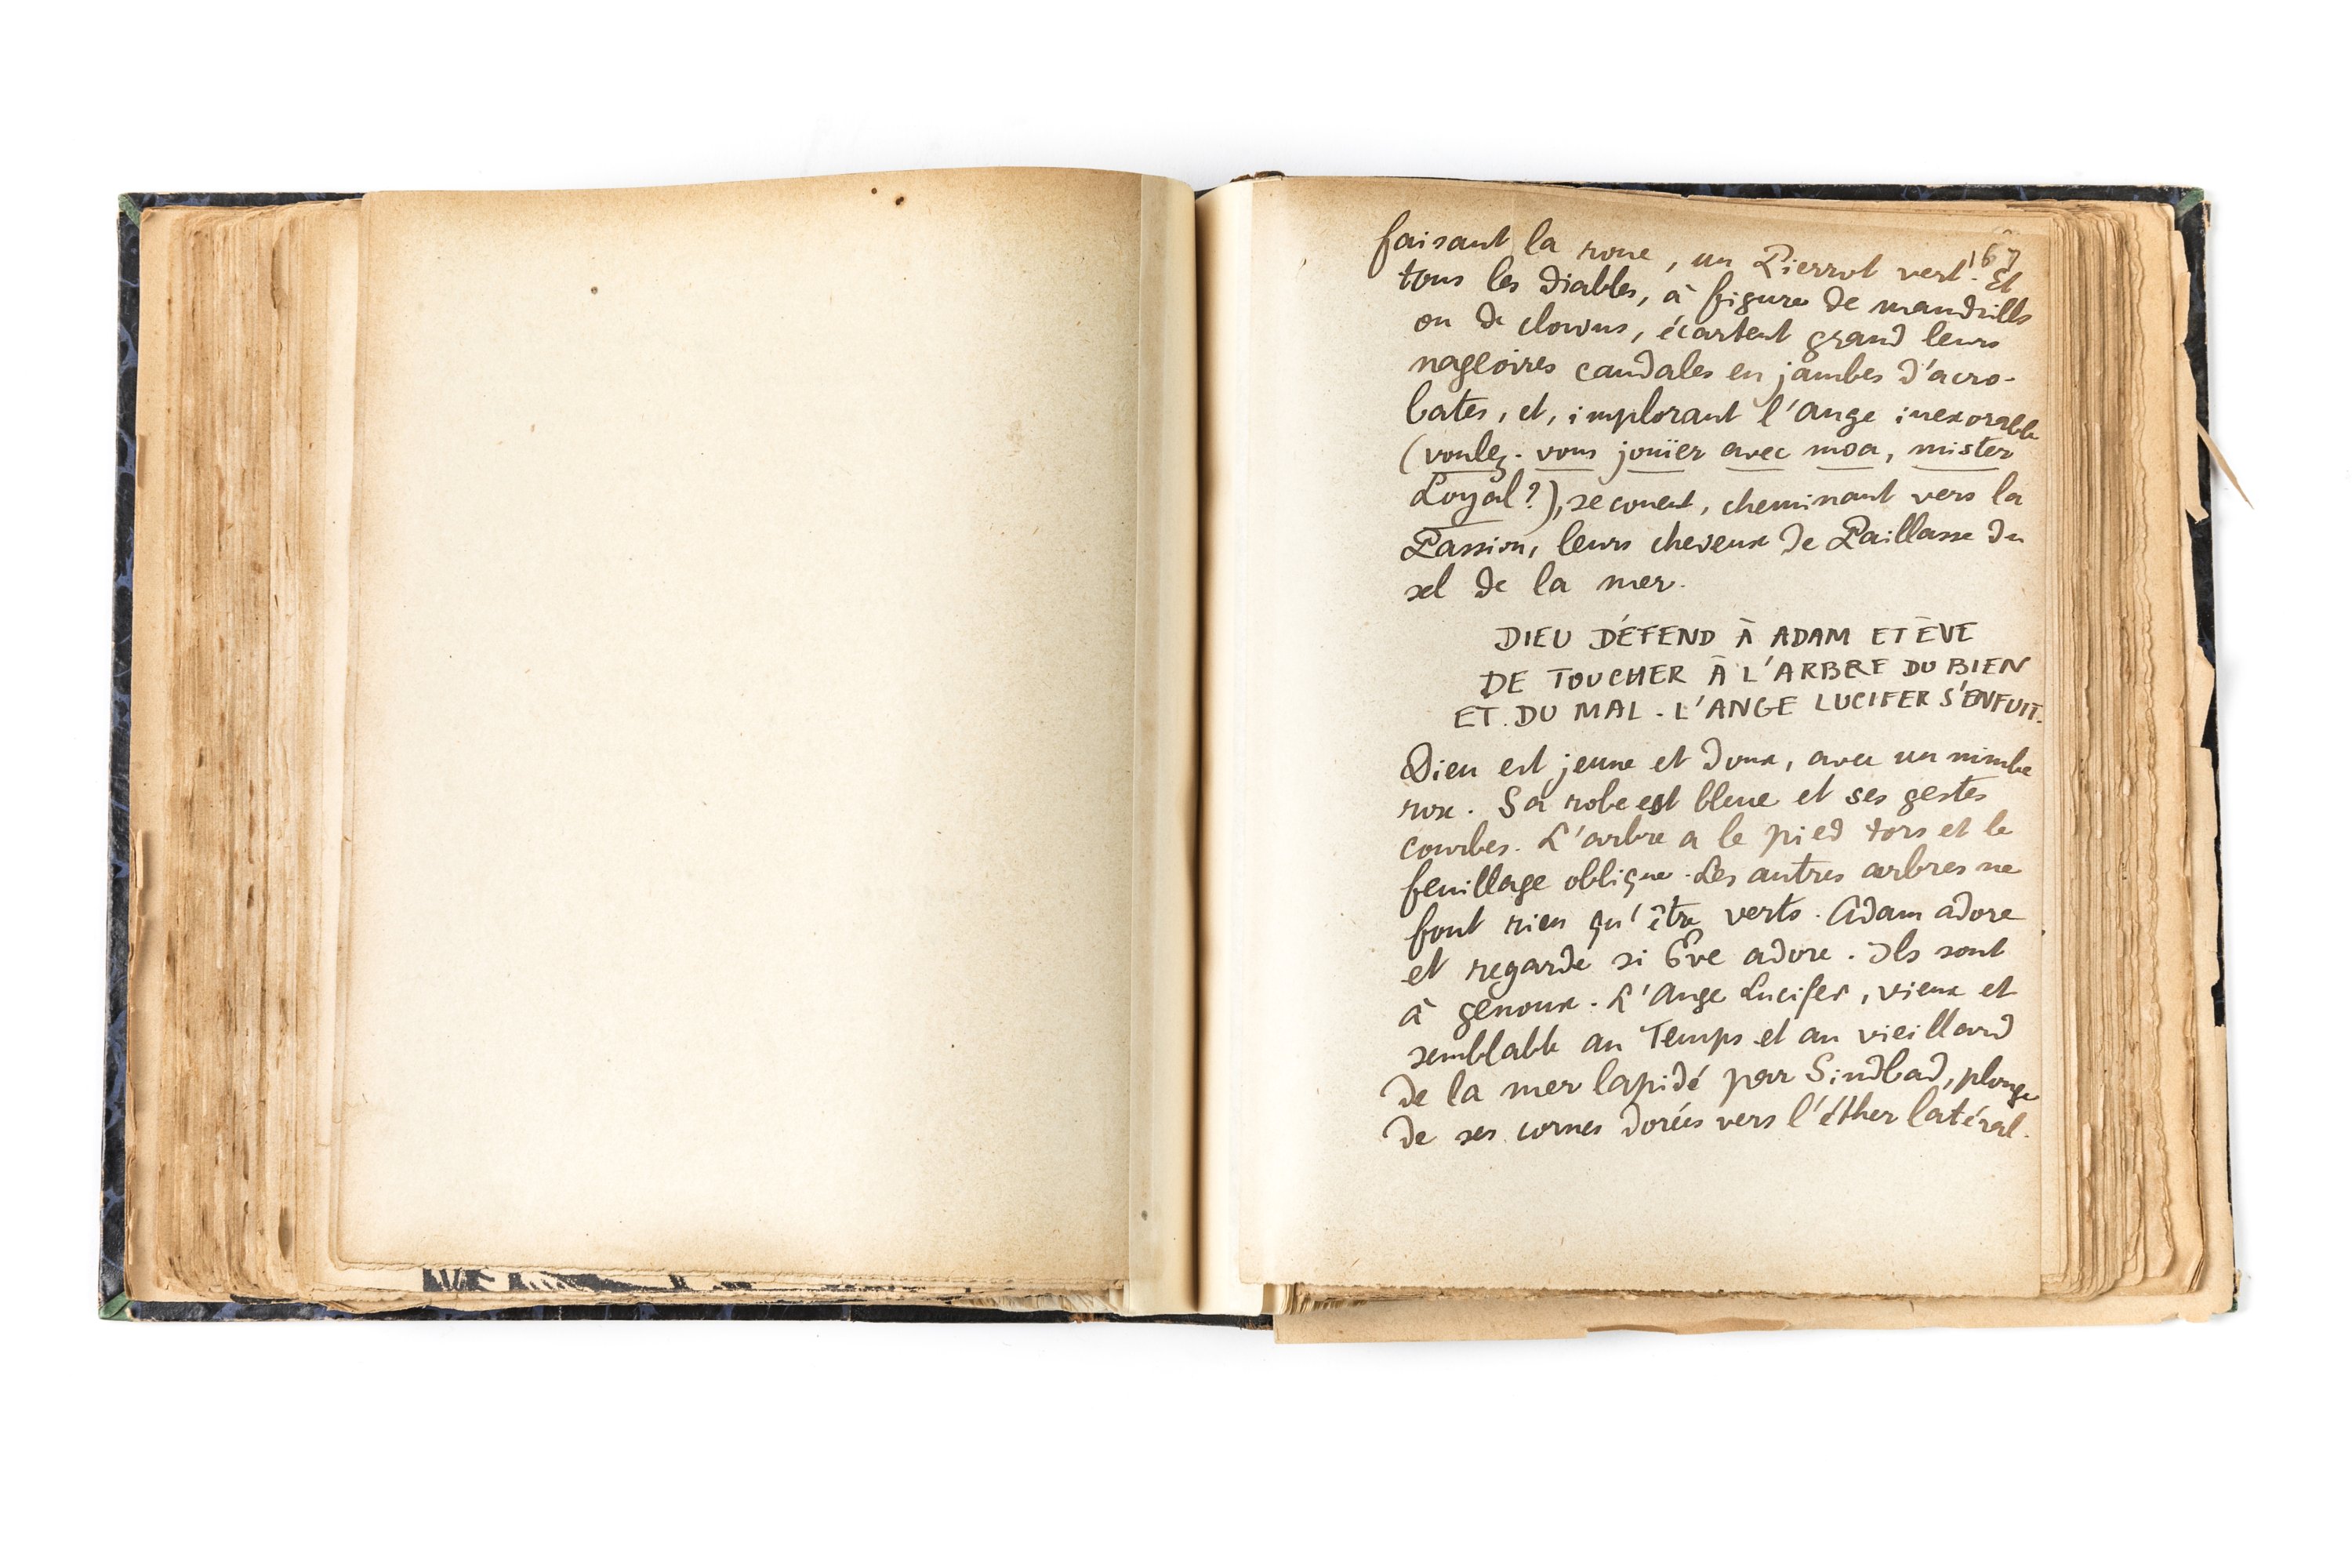 167
faisant la roue, un Pierrot vert. Et
tous les diables, à figure de mandrills
ou de clowns, écartent grand leurs
nageoires caudales en jambes d'acro-
bates, et, implorant l'ange inexorable
(voulez-vous jouïer avec moa, mister
Loyal?), secouent, cheminant vers la
Passion, leurs cheveux de Paillasse du
sel de la mer.
DIEU DÉFEND À ADAM ET ÈVE
DE TOUCHER À L'ARBRE DU BIEN
ET DU MAL. L'ANGE LUCIFER S'ENFUIT.
Dieu est jeune et doux, avec un nimbe
rose. Sa robe est bleue et ses gestes
courbes. L'arbre a le pied tors et le
feuillage oblique. Les autres arbres ne
font rien qu'être verts. Adam adore
et regarde si Ève adore. Ils sont
à genoux. L'Ange Lucifer, vieux et
semblable au Temps et au vieillard
de la mer lapidé par Sindbad, plonge
de ses cornes dorées vers l'éther latéral.